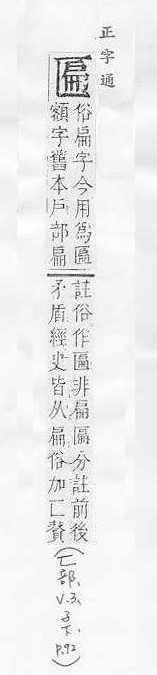 正字通
匾
俗扁字今用爲匾
額字舊本戶部扁
註俗作匾非扁匾分註前後
矛盾經史皆从扁俗加匚贅
(匚部、V.3、子下、p.92)